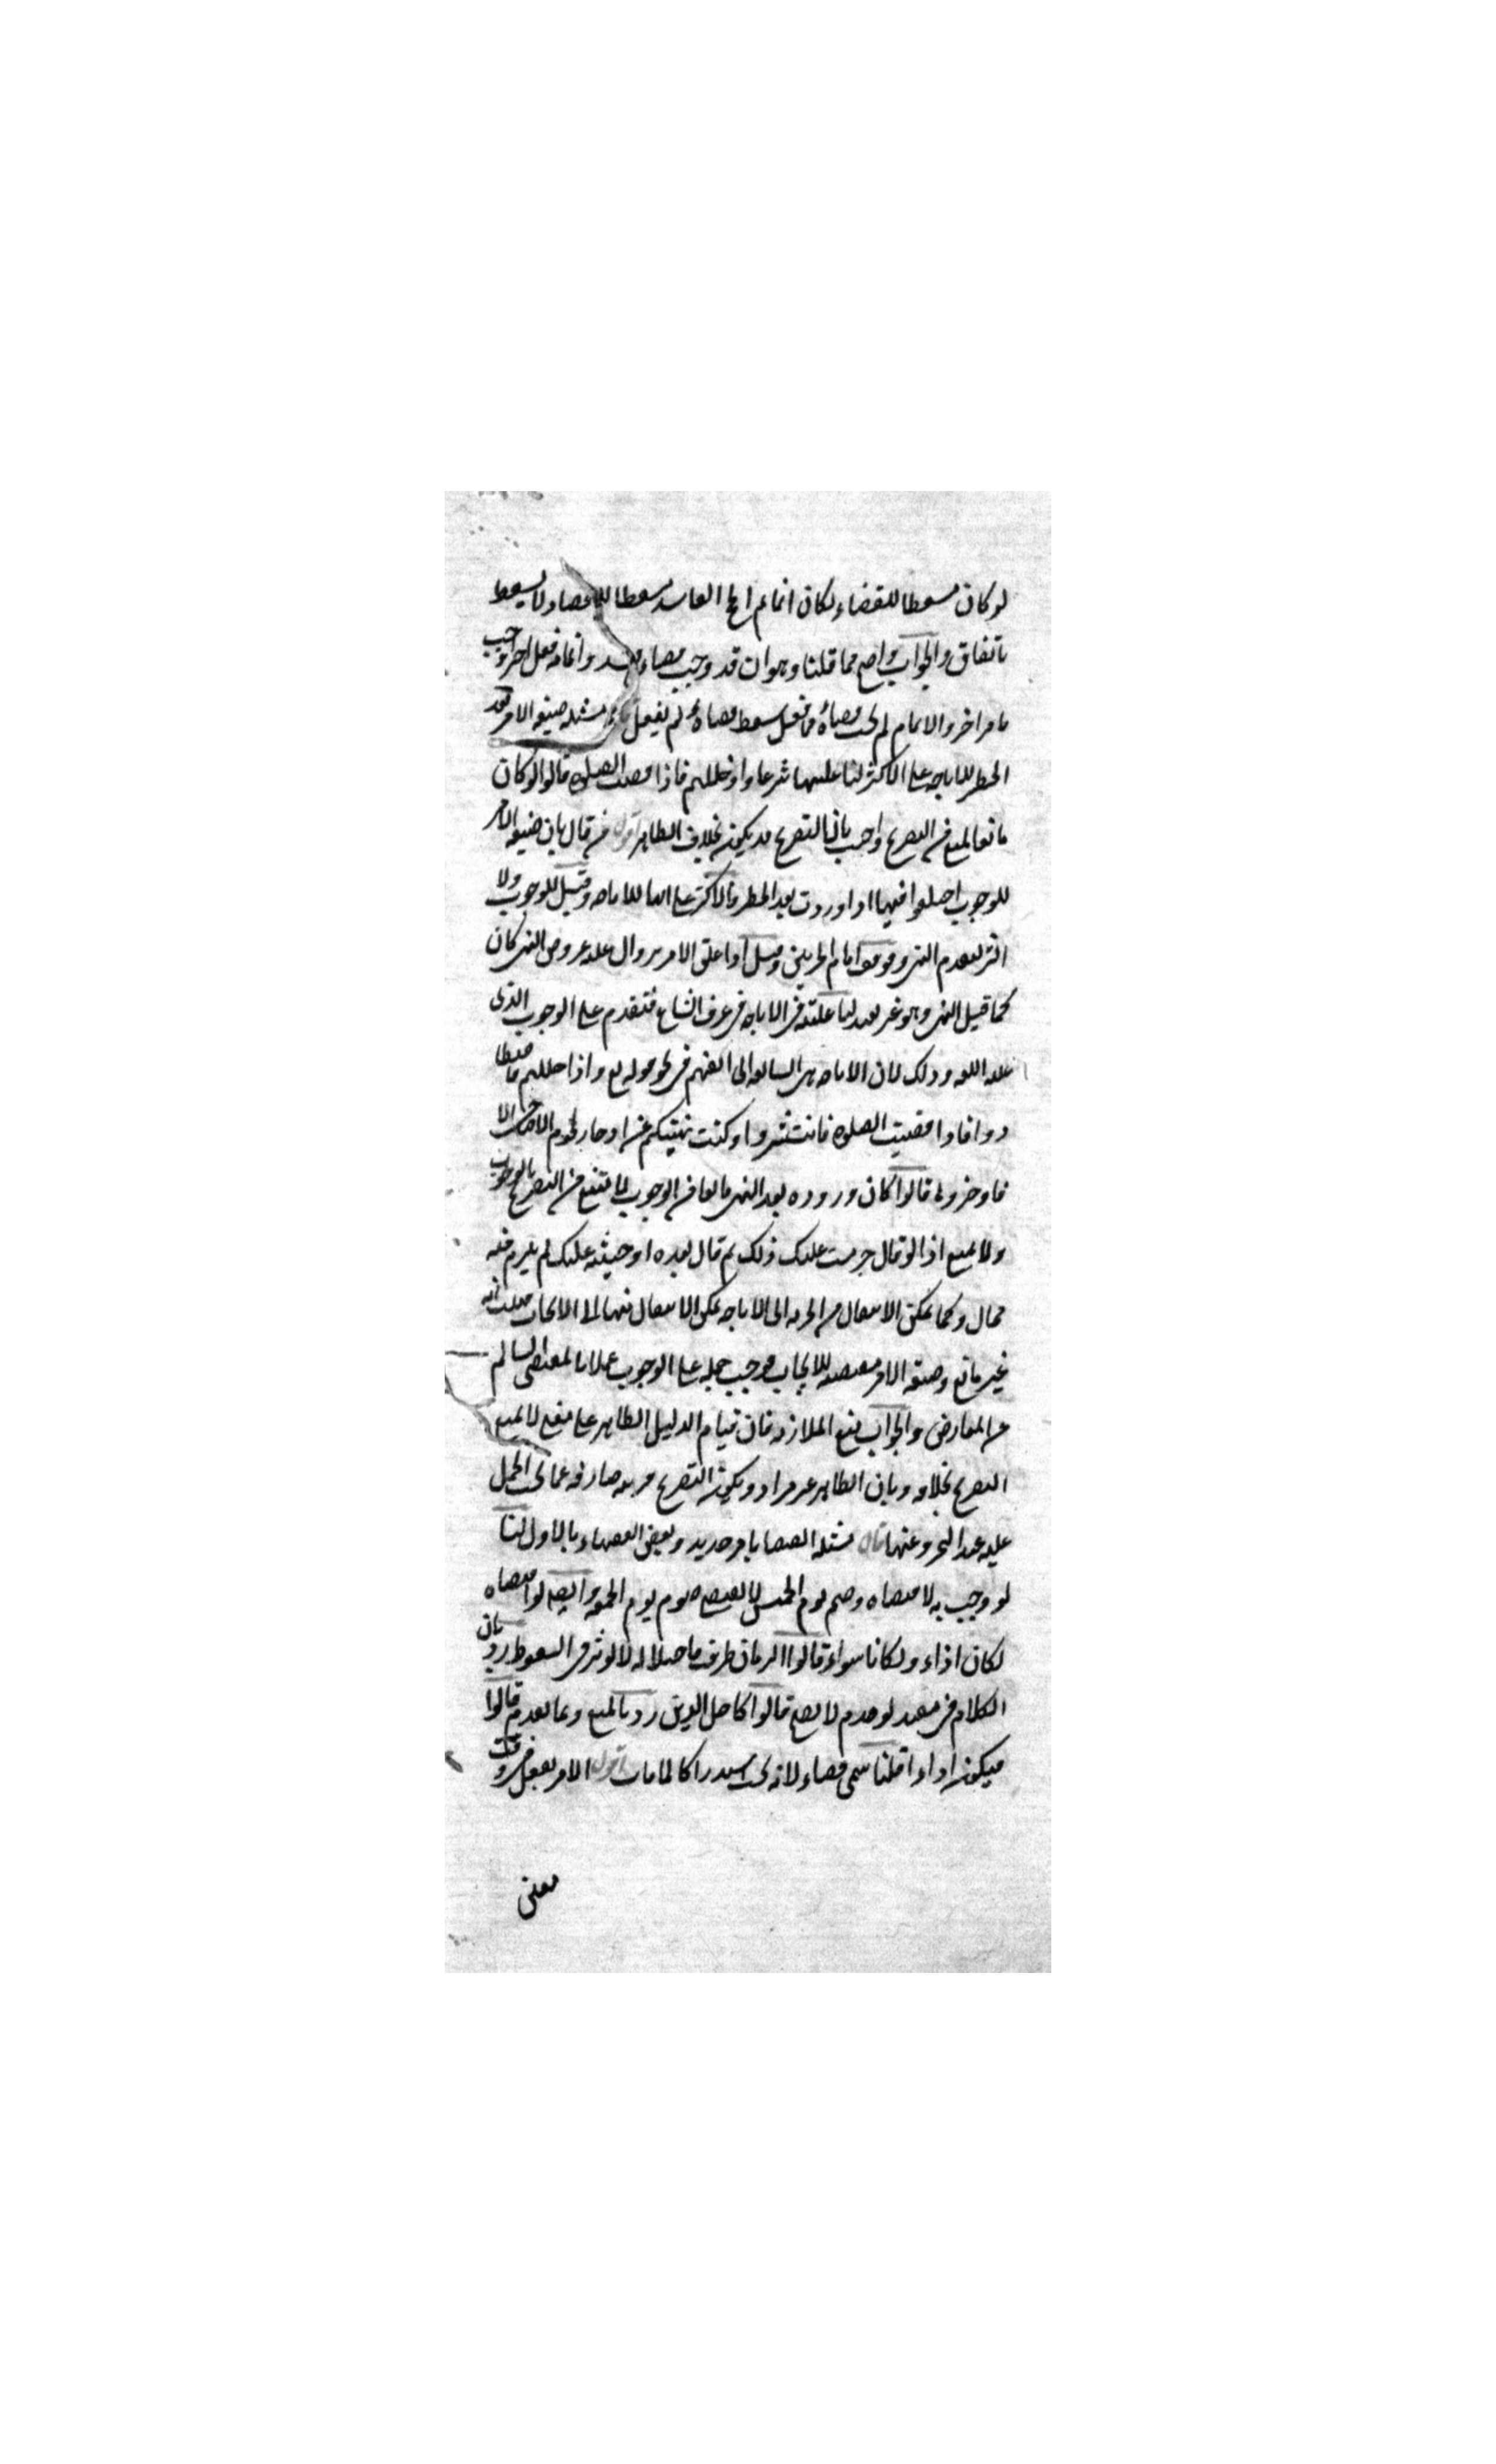 لو كان مسقطا للقضاء لكان اتمام الحج الفاسد مسقطا للقضاء ولا يسقط
باتفاق والجواب واضح مما قلنا وهو ان قد وجب قضاء وانما فعل اخر وجب
بامر اخر والاتمام لم يجب قضاؤه فما فعل سقط قضاؤه لم يفعل مسئلة صيغة الامر بعد
الحظر للاباحة على الاكثر لنا غلبتها شرعا واذا حللتم فاذا قضيت الصلوة قالوا لو كان
مانعا لمنع من التصريح واجيب بان التصريح قد يكون بخلاف الظاهر اقول من قال بان صيغة الامر
للوجوب اختلفوا فيها اذا وردت بعد الحظر والاكثر على انها للاباحة وقيل للوجوب ولا
اثر لتقدم النهى وتوقف امام الحرمين وقيل اذا علق الامر بزوال علة عروض النهى كان
كما قبل النهى وهو غير بعيد لنا غلبته فى الاباحة فى عرف الشارع فتقدم على الوجوب الذى
عليه اللغة وذلك لان الاباحة هى السابقة الى الفهم فى نحو قوله تع واذا حللتم فاصطا
دوا فاذا قضيت الصلوة فانتشروا وكنت نهيتكم عن ادخار لحوم الاضاحى الا
فادخروا قالوا لو كان وروده بعد النهى مانعا من الوجوب لامتنع من التصريح بالوجوب
ولا يمتنع اذ لو قال حرمت عليك ذلك ثم قال بعده اوجبته عليك لم يلزم منه
محال وكما يمكن الانتقال من الحرمة الى الاباحة يمكن الانتقال منها الى الايجاب فثبت انه
غير مانع وصيغة الامر مقتضية للايجاب فوجب حمله على الوجوب عملا بالمقتضى السالم
عن المعارض والجواب بمنع الملازمة فان قيام الدليل الظاهر على معنى لا يمنع
التصريح بخلافه وبان الظاهر غير مراد ويكون التصريح قرينة صارفة عما يجب الحمل
عليه عند التجرد عنها قال مسئلة القضا بامر جديد وبعض الفقهاء بالاول لنا
لو وجب به لاقتضاه وصم يوم الخميس لا يقتضى صوم يوم الجمعة وايضا لو اقتضاه
لكان اداء ولكانا سواء قالوا الزمان ظرف فاختلاله لا يؤثر فى السقوط رد بان
الكلام فى مقيد لو قدم لا يصح قالوا كاجل الدين رد بالمنع وبما تقدم قالوا
فيكون اداء قلنا سمى قضاء لانه يجب استدراكا لما فات اقول الامر بفعل فى وقت
معين